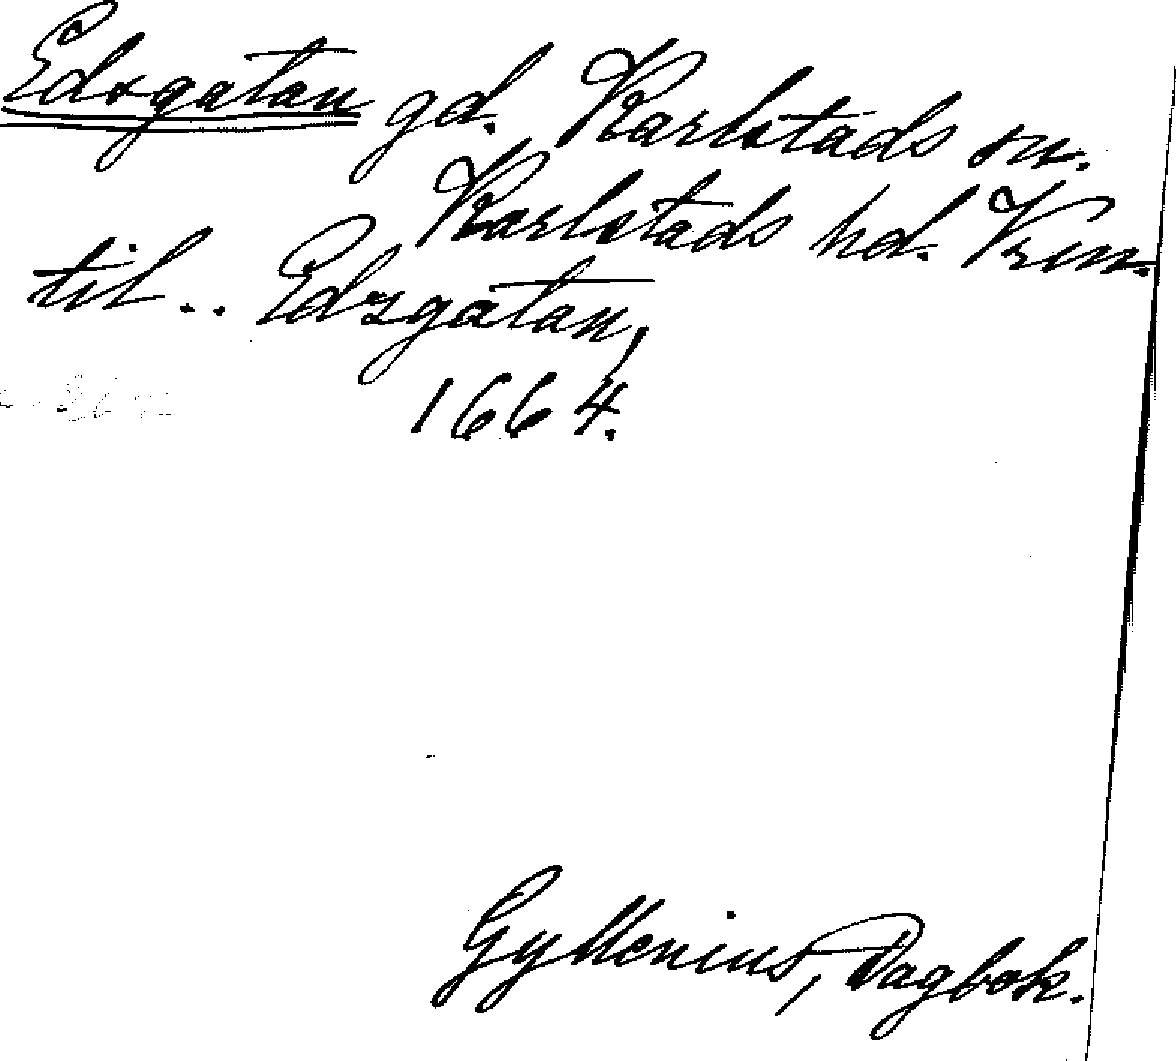 Edsgatan gd. Karlstads sn.
Karlstads hd. Vrm.
till .. Edzgatan,
1664.
Gyllenius, Dagbok.